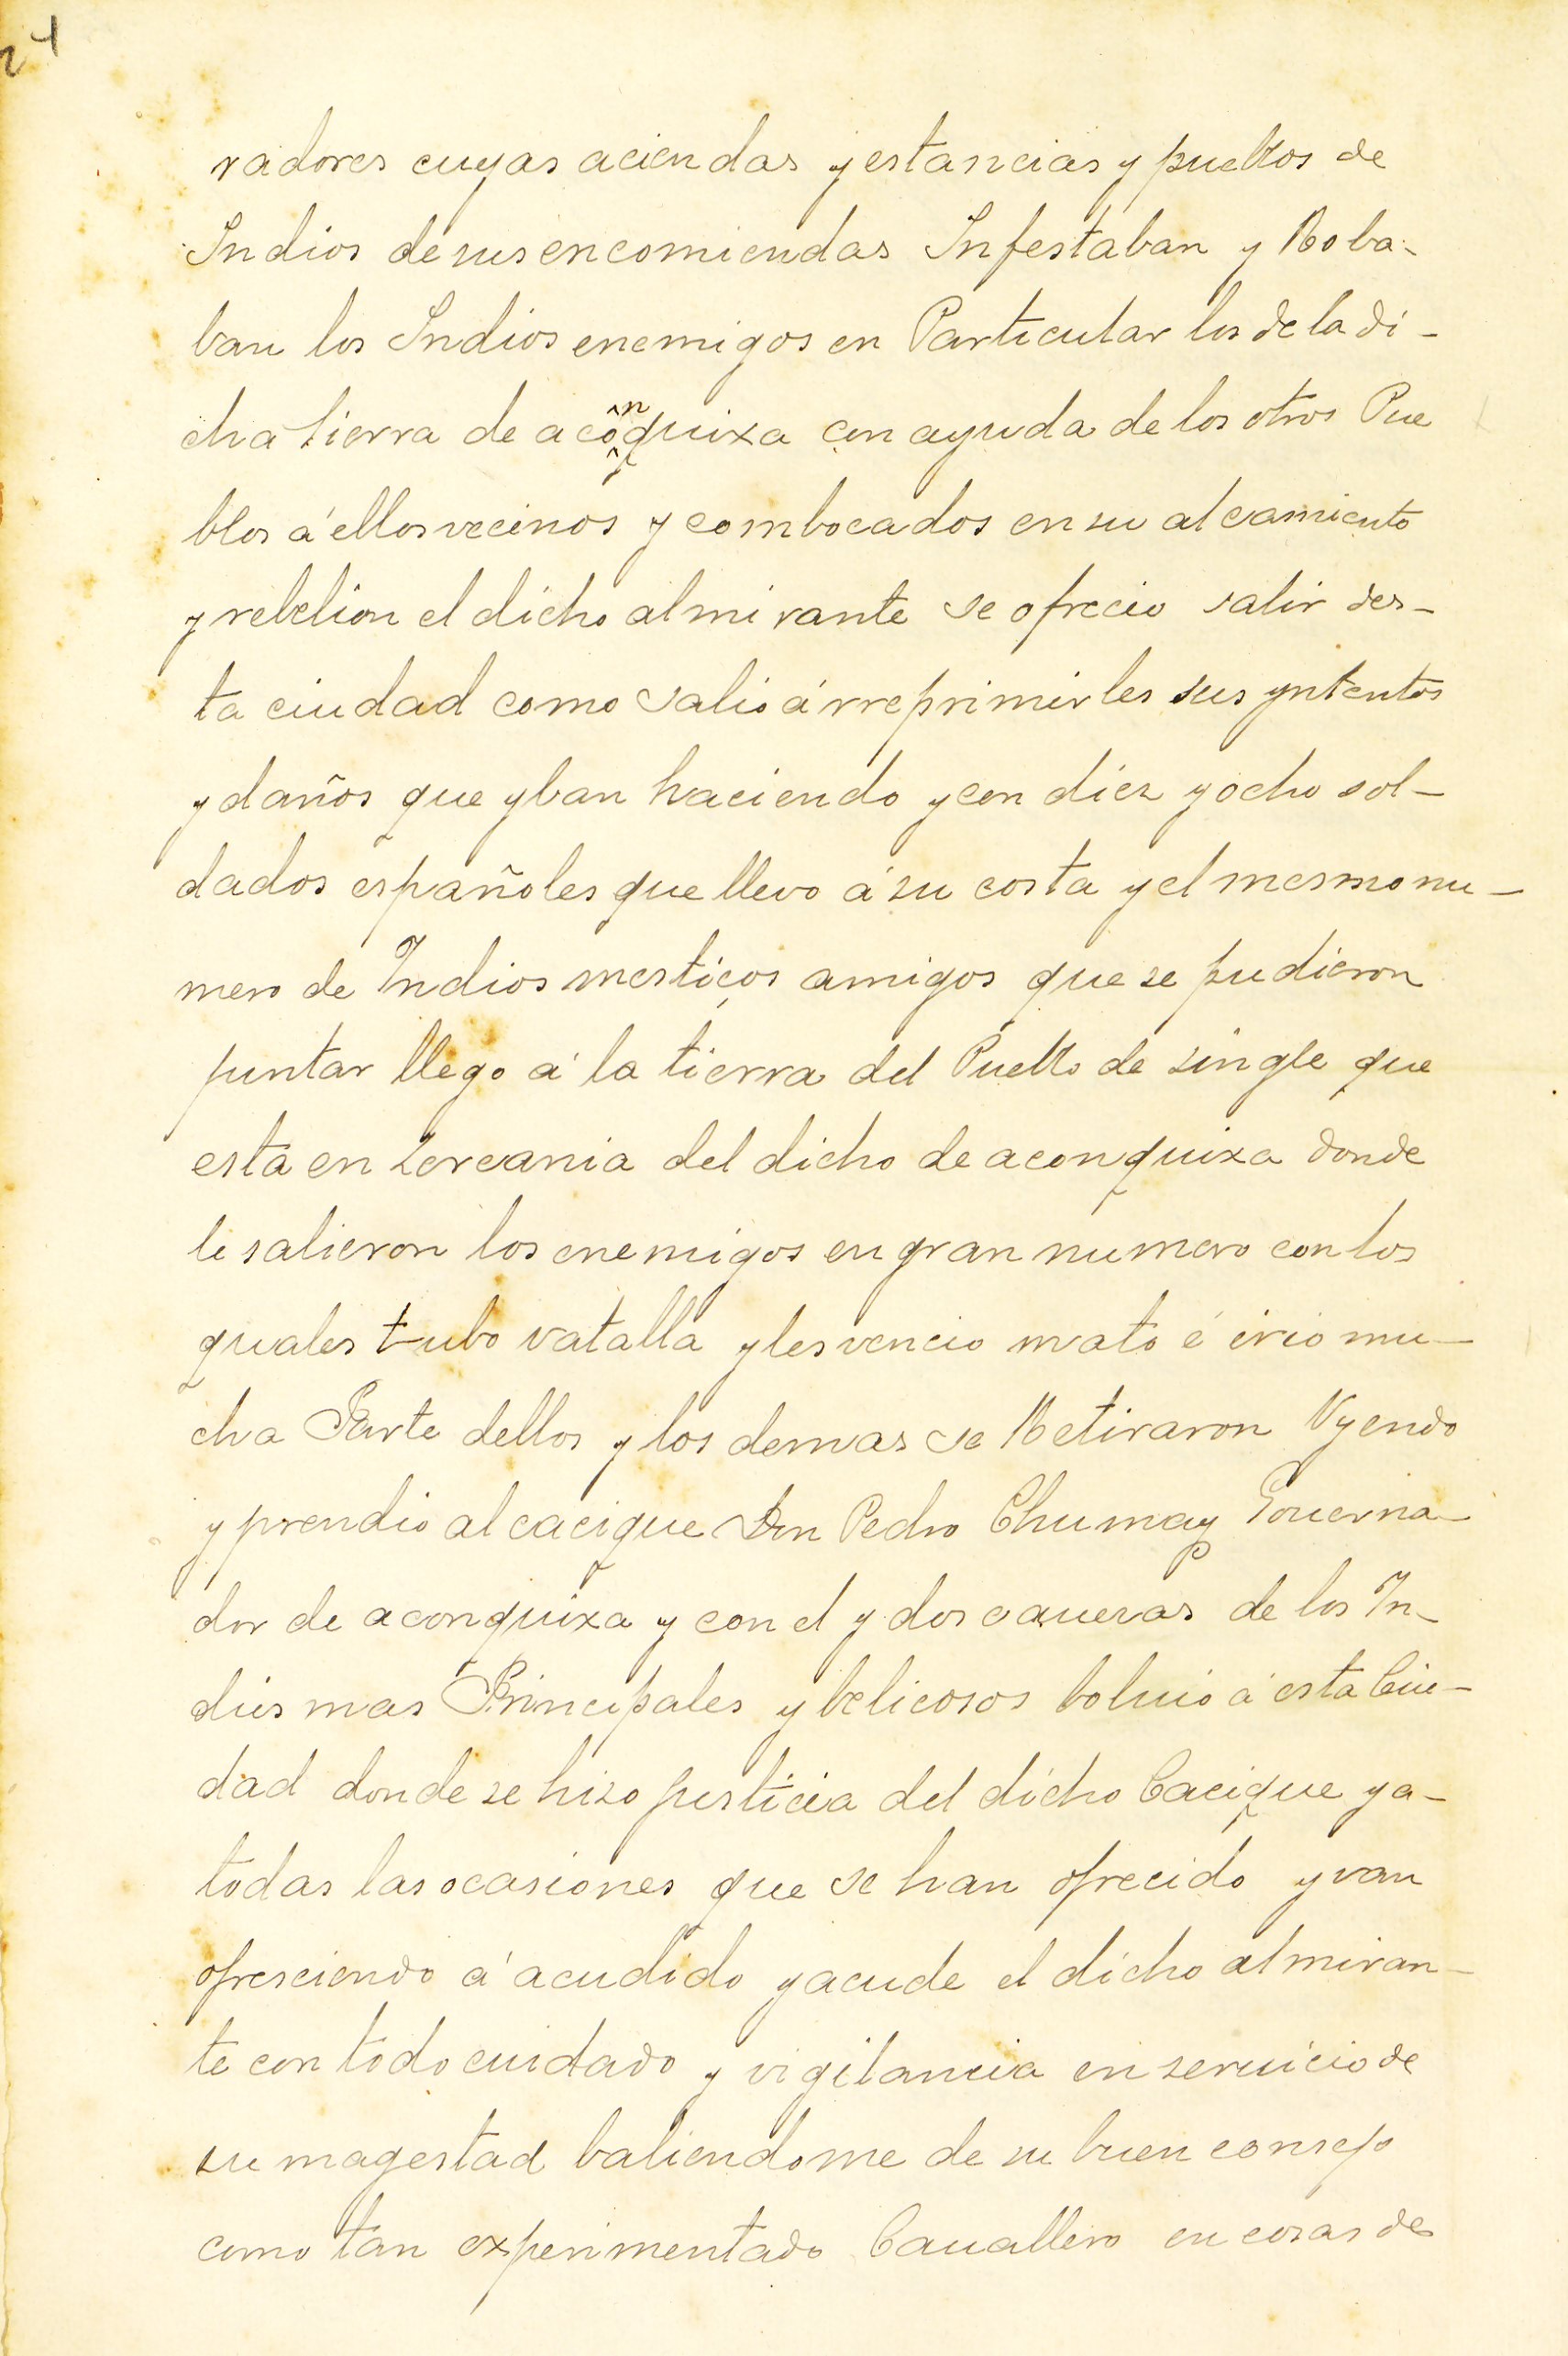 24
radores cuyas aciendas y estancias y pueblos de
Indios de sus encomiendas Infestaban y Roba-
ban los Indios enemigos en Particular los de la di-
cha tierra de aconquixa con ayuda de los otros Pue
blos á ellos vecinos y combocados en su alcamiento
y rebelion el dicho almirante se ofrecio salir des-
ta ciudad como salio á rreprimirles sus yntentos
y daños que yban haciendo y con diez y ocho sol-
dados españoles que llevo á su costa y el mesmo nu-
mero de Indios mestiços amigos que se pudieron
juntar llego á la tierra del Pueblo de single que
está en zercania del dicho de aconquixa donde
le salieron los enemigos en gran numero con los
quales tubo vatalla y les vencio mato é irio mu-
cha Parte dellos y los demas se Retiraron Vyendo
y prendio al cacique Don Pedro Chumay Gouerna-
dor de aconquixa y con el y dos caueras de los In-
dios mas Principales y belicosos boluio á esta Ciu-
dad donde se hizo justicia del dicho Cacique y a-
todas las ocasiones que se han ofrecido y van
ofresciendo á acudido y acude el dicho almiran-
te con todo cuidado y vigilancia en seruicio de
su magestad baliendome de su buen consejo
como tan experimentado Cauallero en cosas de